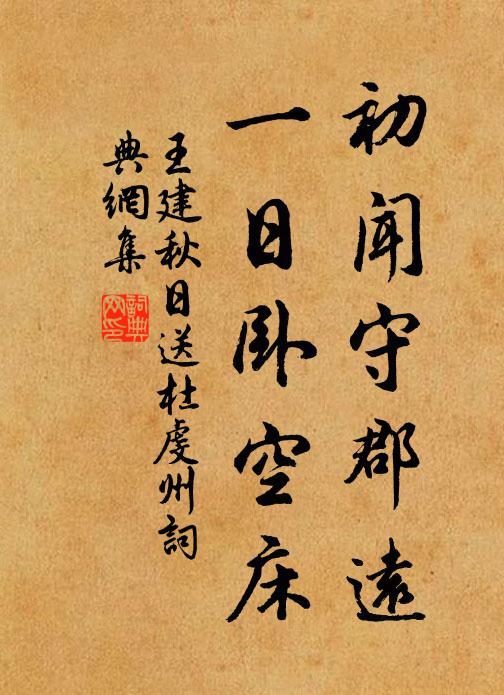 初闻守郡遠
一日卧空床
王建秋日送杜虔州詞
典網集
詞典網印